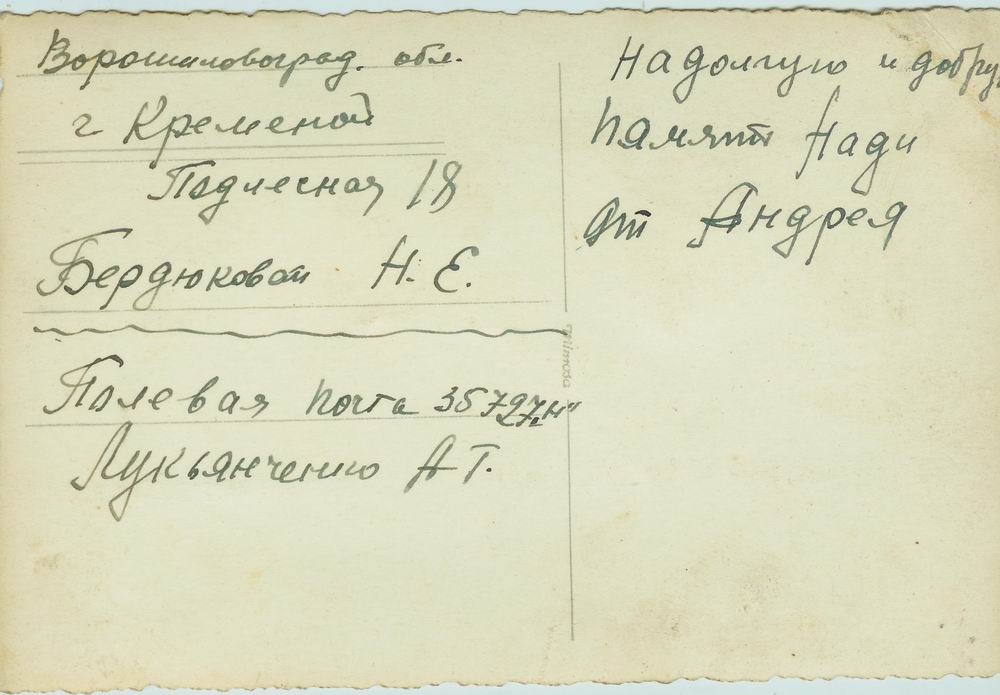 Ворошиловоград. обл.
г Кременой
Подлесная 18
Бердюковой Н. Е.
Полевая почта 35797 "н"
Лукьянченко А Т.
mimosa
На долгую и добру
память Нади
от Андрея